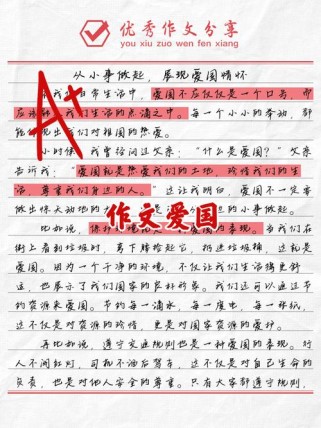 优秀作文分享
you xiu zuo wen fen xiang
从小事做起，展现爱国情怀
A+
常生活中，爱国不应仅仅是一个口号，而
应该 我们生活的点滴之中。每一个小小的举动，都
能 出我们对祖国的热爱。
小时候，我曾经问过父亲：“什么是爱国？”父亲
告诉我：“爱国就是热爱我们的土地，珍惜我们的生
活，尊重我们身边的人。”这让我明白，爱国不一定要
做出惊天动地的大 的小事做起。
作文爱国
比如说，保护环境 的表现。当我们在
街上看到垃圾时，弯下腰捡起它，扔进垃圾桶，这就是
爱国。因为一个干净的环境，不仅让我们生活得更舒
适，也展示了我们国家的良好形象。我们还可以通过节
约资源来爱国。节约每一滴水，每一度电，每一张纸，
这不仅是对资源的珍惜，更是对国家资源的爱护。
再比如说，遵守交通规则也是一种爱国的表现。行
人不闯红灯，司机不酒后驾车，这不仅是对自己生命的
负责，也是对他人安全的尊重。只有大家都遵守规则，